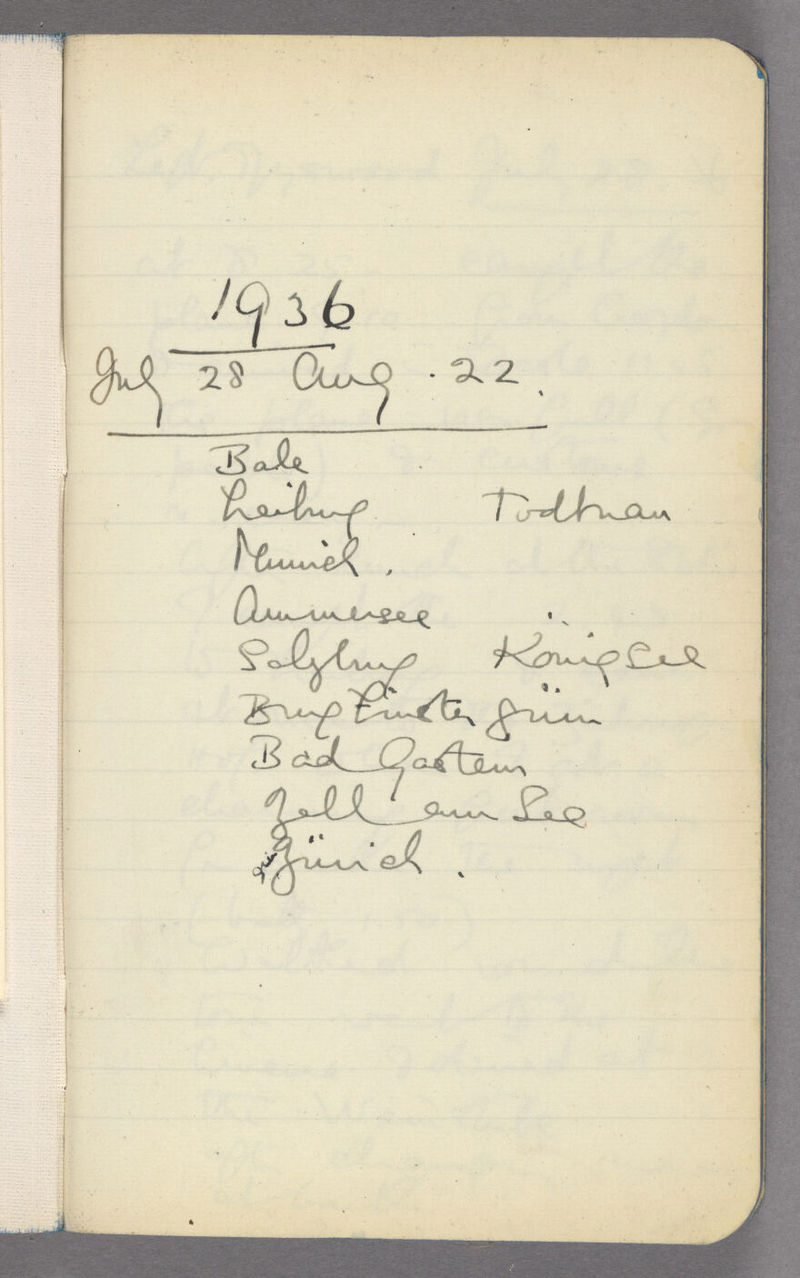 1936
July 28 Aug. 22.
Bale
Freiburg Todtnau
Munich.
Ammersee
Salzburg Königsee
Burg Finstergrün
Bad Gastein
Zell am See
Zürich.